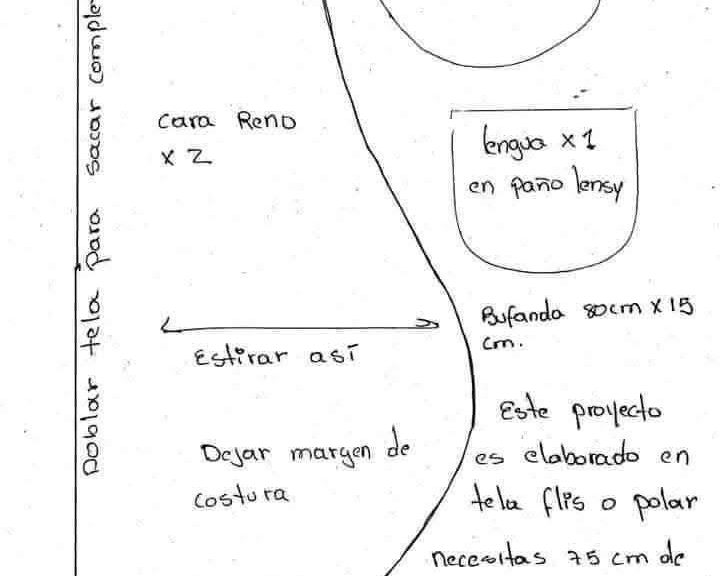 Doblar tela para sacar comple
Cara Reno
x 2
lengua x 1
en paño lensy
Bufanda 80cm x 15
cm.
Estirar así
Dejar margen de
costura
Este proyecto
es elaborado en
tela flis o polar
necesitas 75 cm de